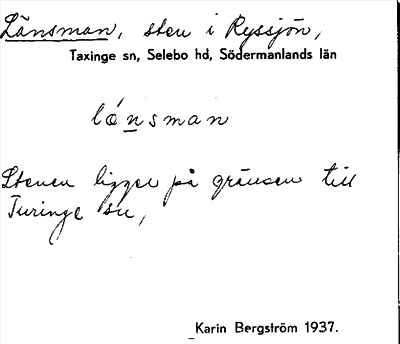 Länsman, sten i Ryssjön,
Taxinge sn, Selebo hd, Södermanlands län
lónsman
Stenen ligger på gränsen till
Turinge sn,
Karin Bergström 1937.